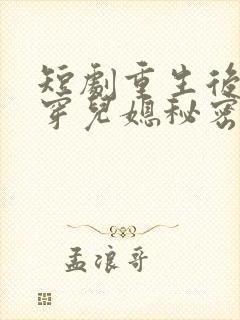 短劇重生後
穿兒媳秘密
孟浪哥